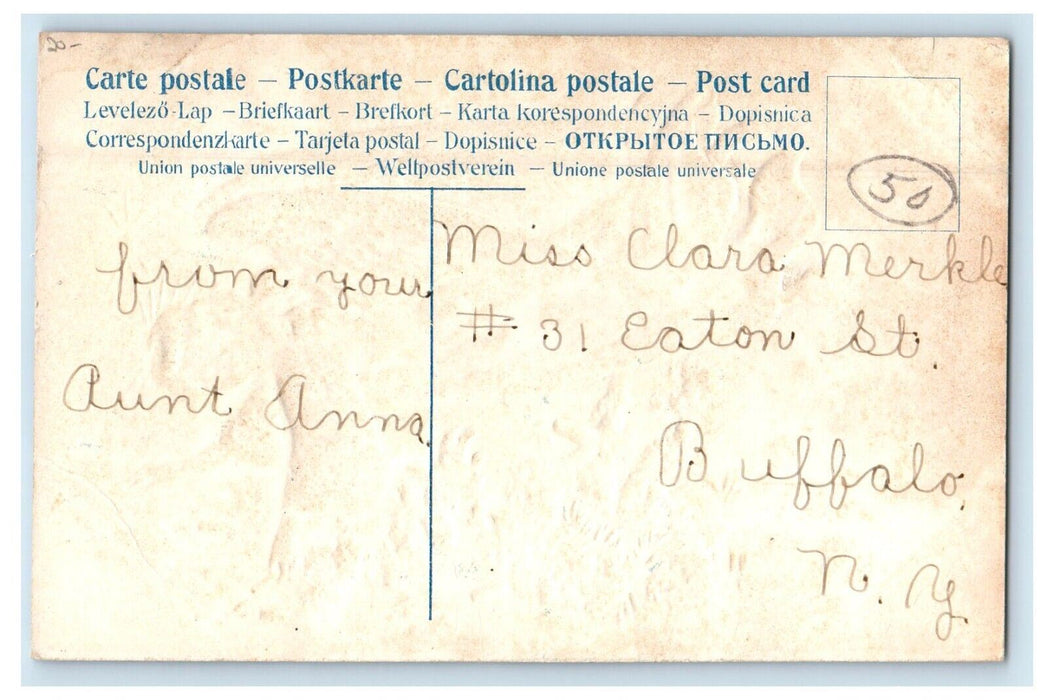 20-
Carte postale — Postkarte — Cartolina postale — Post card
Levelező-Lap – Briefkaart – Brefkort – Karta korespondencyjna – Dopisnica
Correspondenzkarte – Tarjeta postal – Dopisnice – ОТКРЫТОЕ ПИСЬМО.
Union postale universelle — Weltpostverein — Unione postale universale
50
from your
Aunt Anna.
Miss Clara Merkle
# 31 Eaton St.
Buffalo.
N. Y.